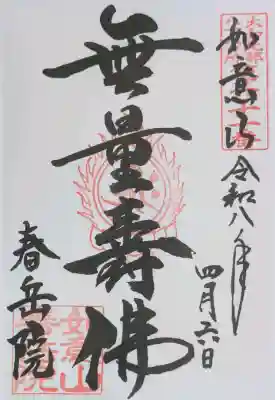 如意山
令和八年
四月六日
無量壽佛
春岳院
如意山